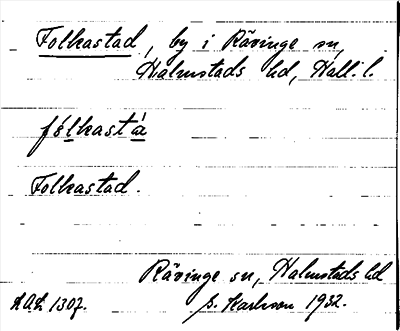 Folkastad, by i Rävinge sn,
Halmstads hd, Hall. l.
fólkastá
Folkastad.
Rävinge sn, Halmstads hd
A.O.Z. 1307. S. Karlsson 1932.